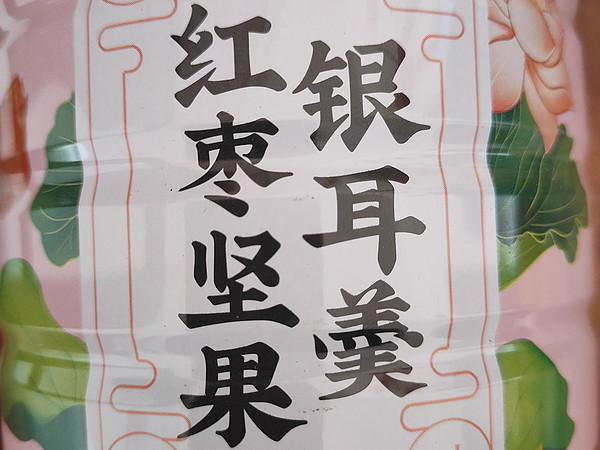 红枣坚果
银耳羹